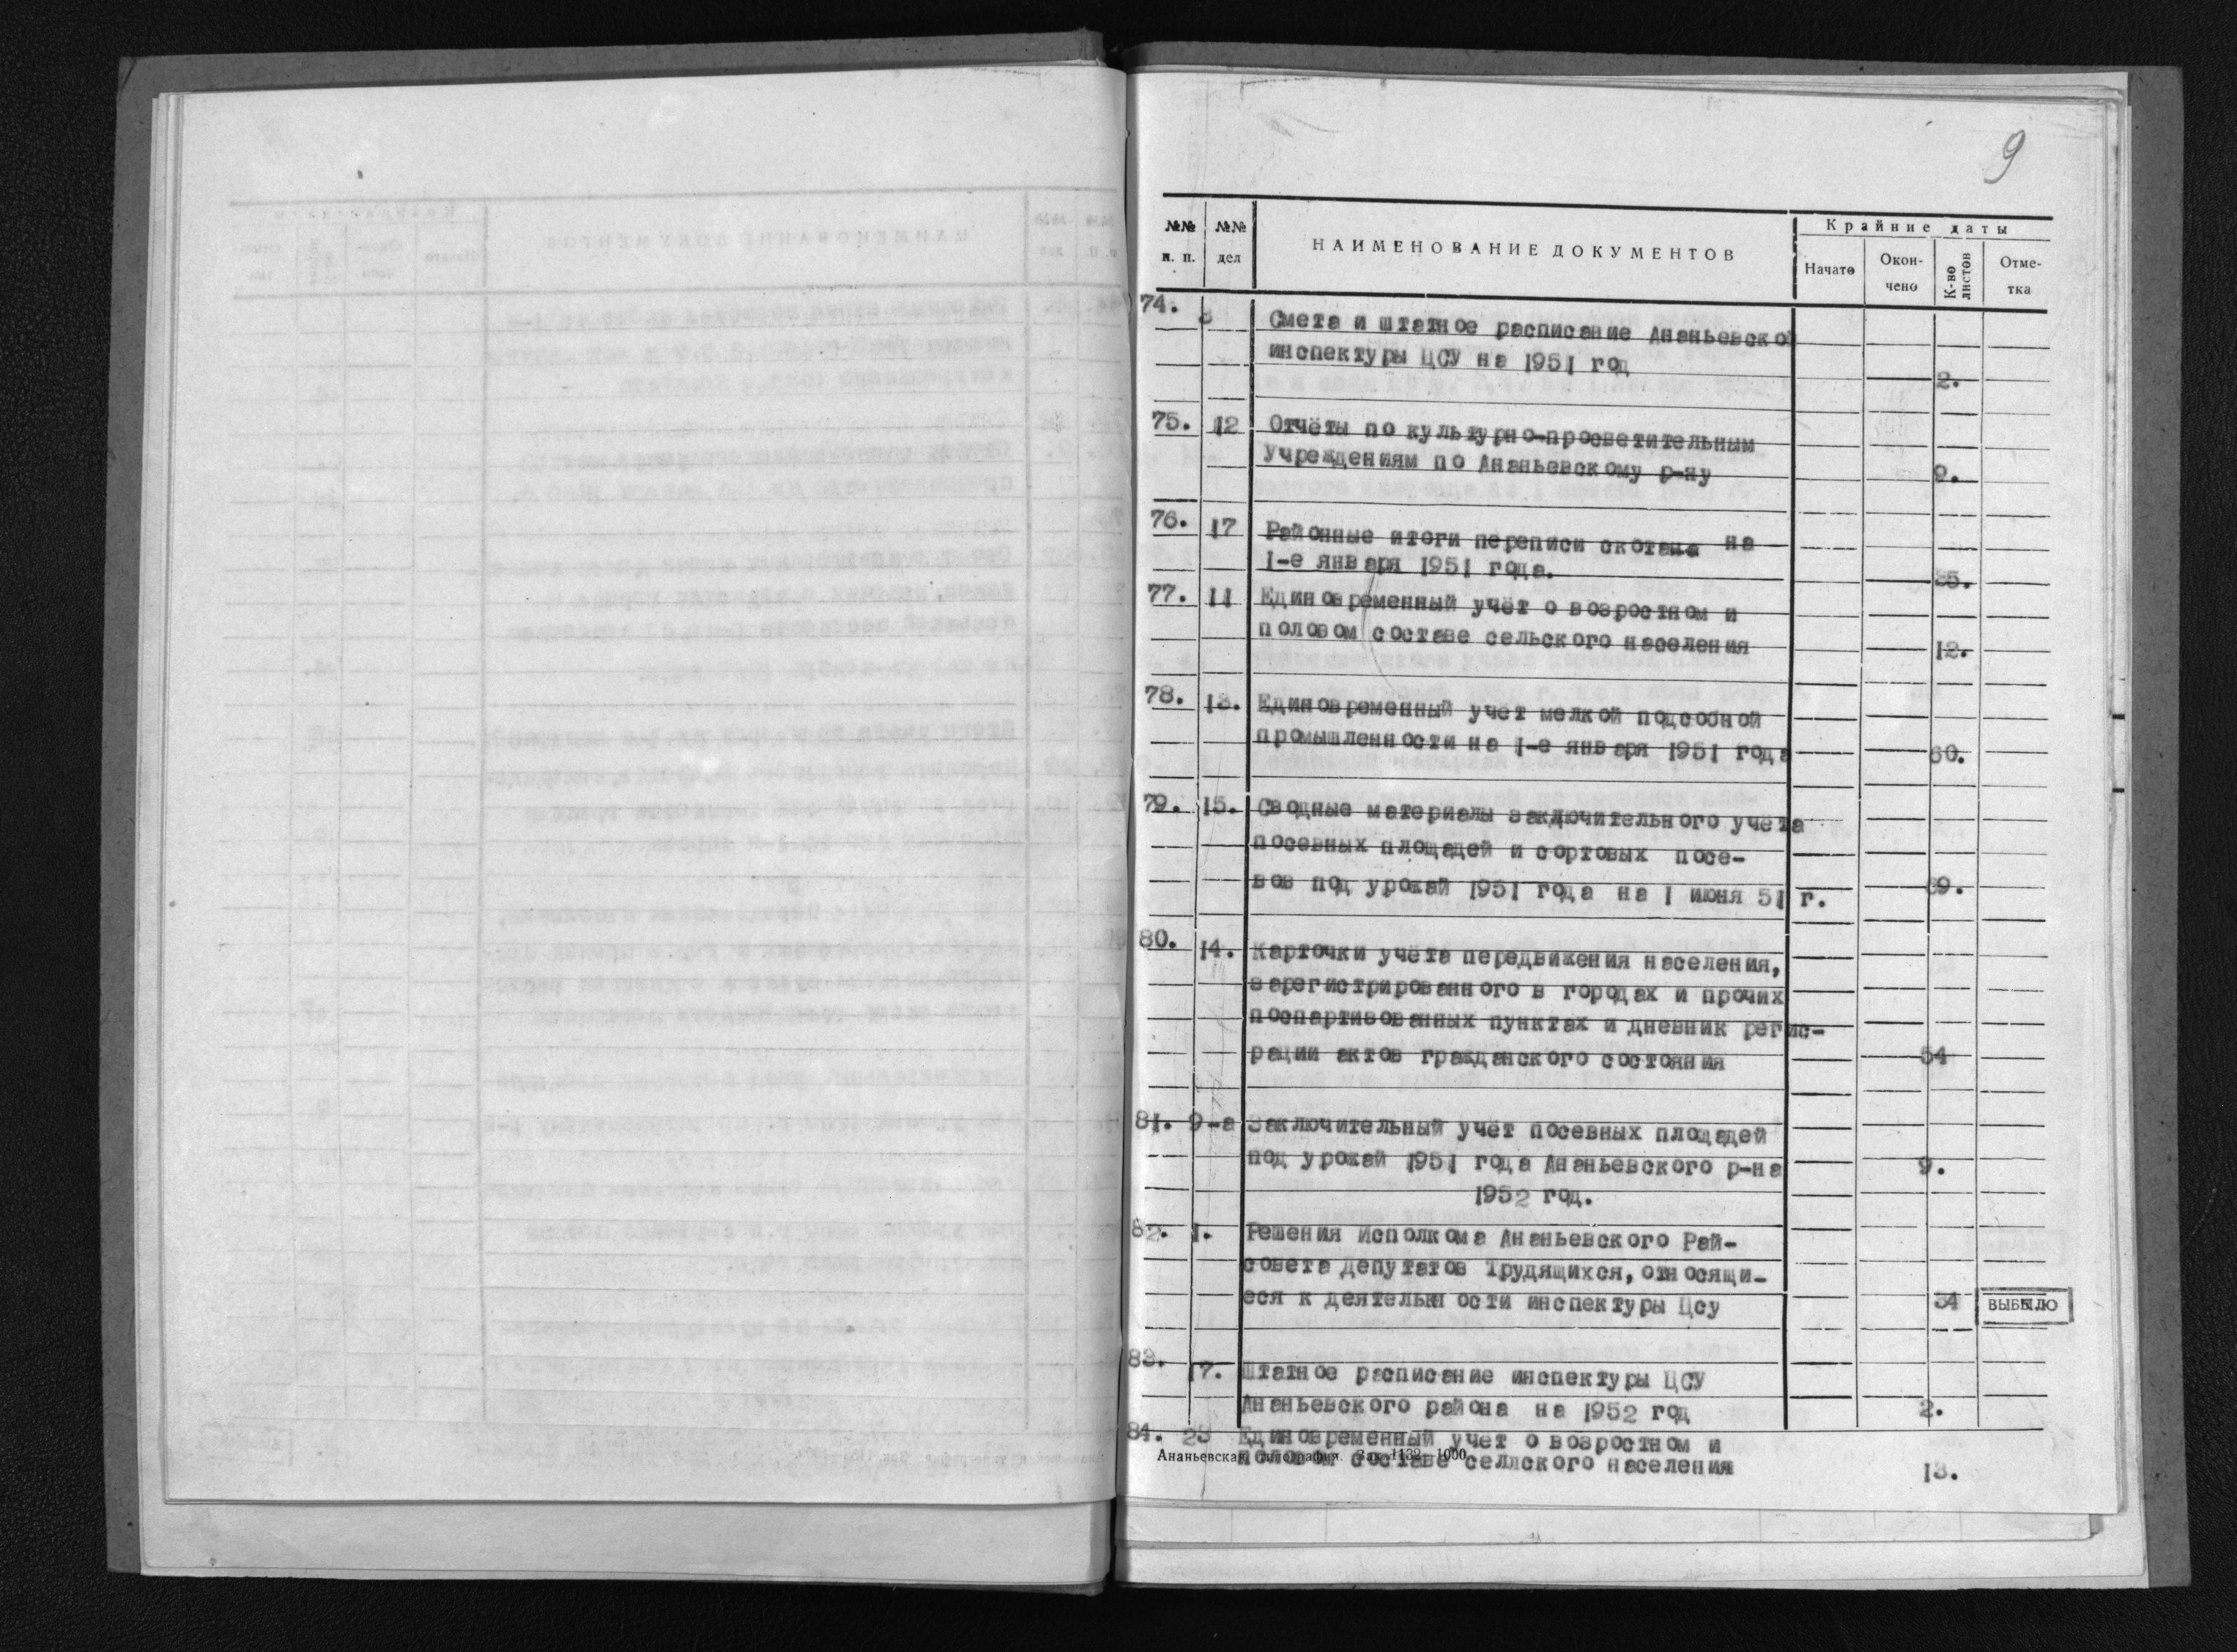 9
№№ п. п.
№№ дел
НАИМЕНОВАНИЕ ДОКУМЕНТОВ
Крайние даты
Начато
Окон-
чено
К-во листов
Отме-
тка
74. 8 Смета и штатное расписание Ананьевской
инспектуры ЦСУ на 1951 год
2.
75. 12 Отчёты по культурно-просветительным
Учреждениям по Ананьевскому р-ну 9.
76. 17 Районные итоги переписи скота на
1-е января 1951 года.
77. 11 Единовременный учёт о возростном и
половом составе сельского населения 12.
78. 13. Единовременный учёт мелкой подсобной
промышленности на 1-е января 1951 года 60.
79. 15. Сводные материалы заключительного учёта
посевных площадей и сортовых посе-
вов под урожай 1951 года на 1 июня 51 г. 39.
80. 14. Карточки учёта передвижения населения,
зарегистрированного в городах и прочих
поспартизованных пунктах и дневник регис-
рации актов гражданского состояния 54
81. 9-а Заключительный учёт посевных площадей
под урожай 1951 года Ананьевского р-на 9.
1952 год.
82. 1. Решения Исполкома Ананьевского Рай-
совета Депутатов Трудящихся, относящи-
еся к деятельности инспектуры Цсу 34 ВЫБЫЛО
83. 17. Штатное расписание инспектуры ЦСУ
Ананьевского района на 1952 год 2.
84. 23 Единовременный учет о возростном и
половом составе селлского населения 13.
Ананьевская типография. Зак. 1132—1000